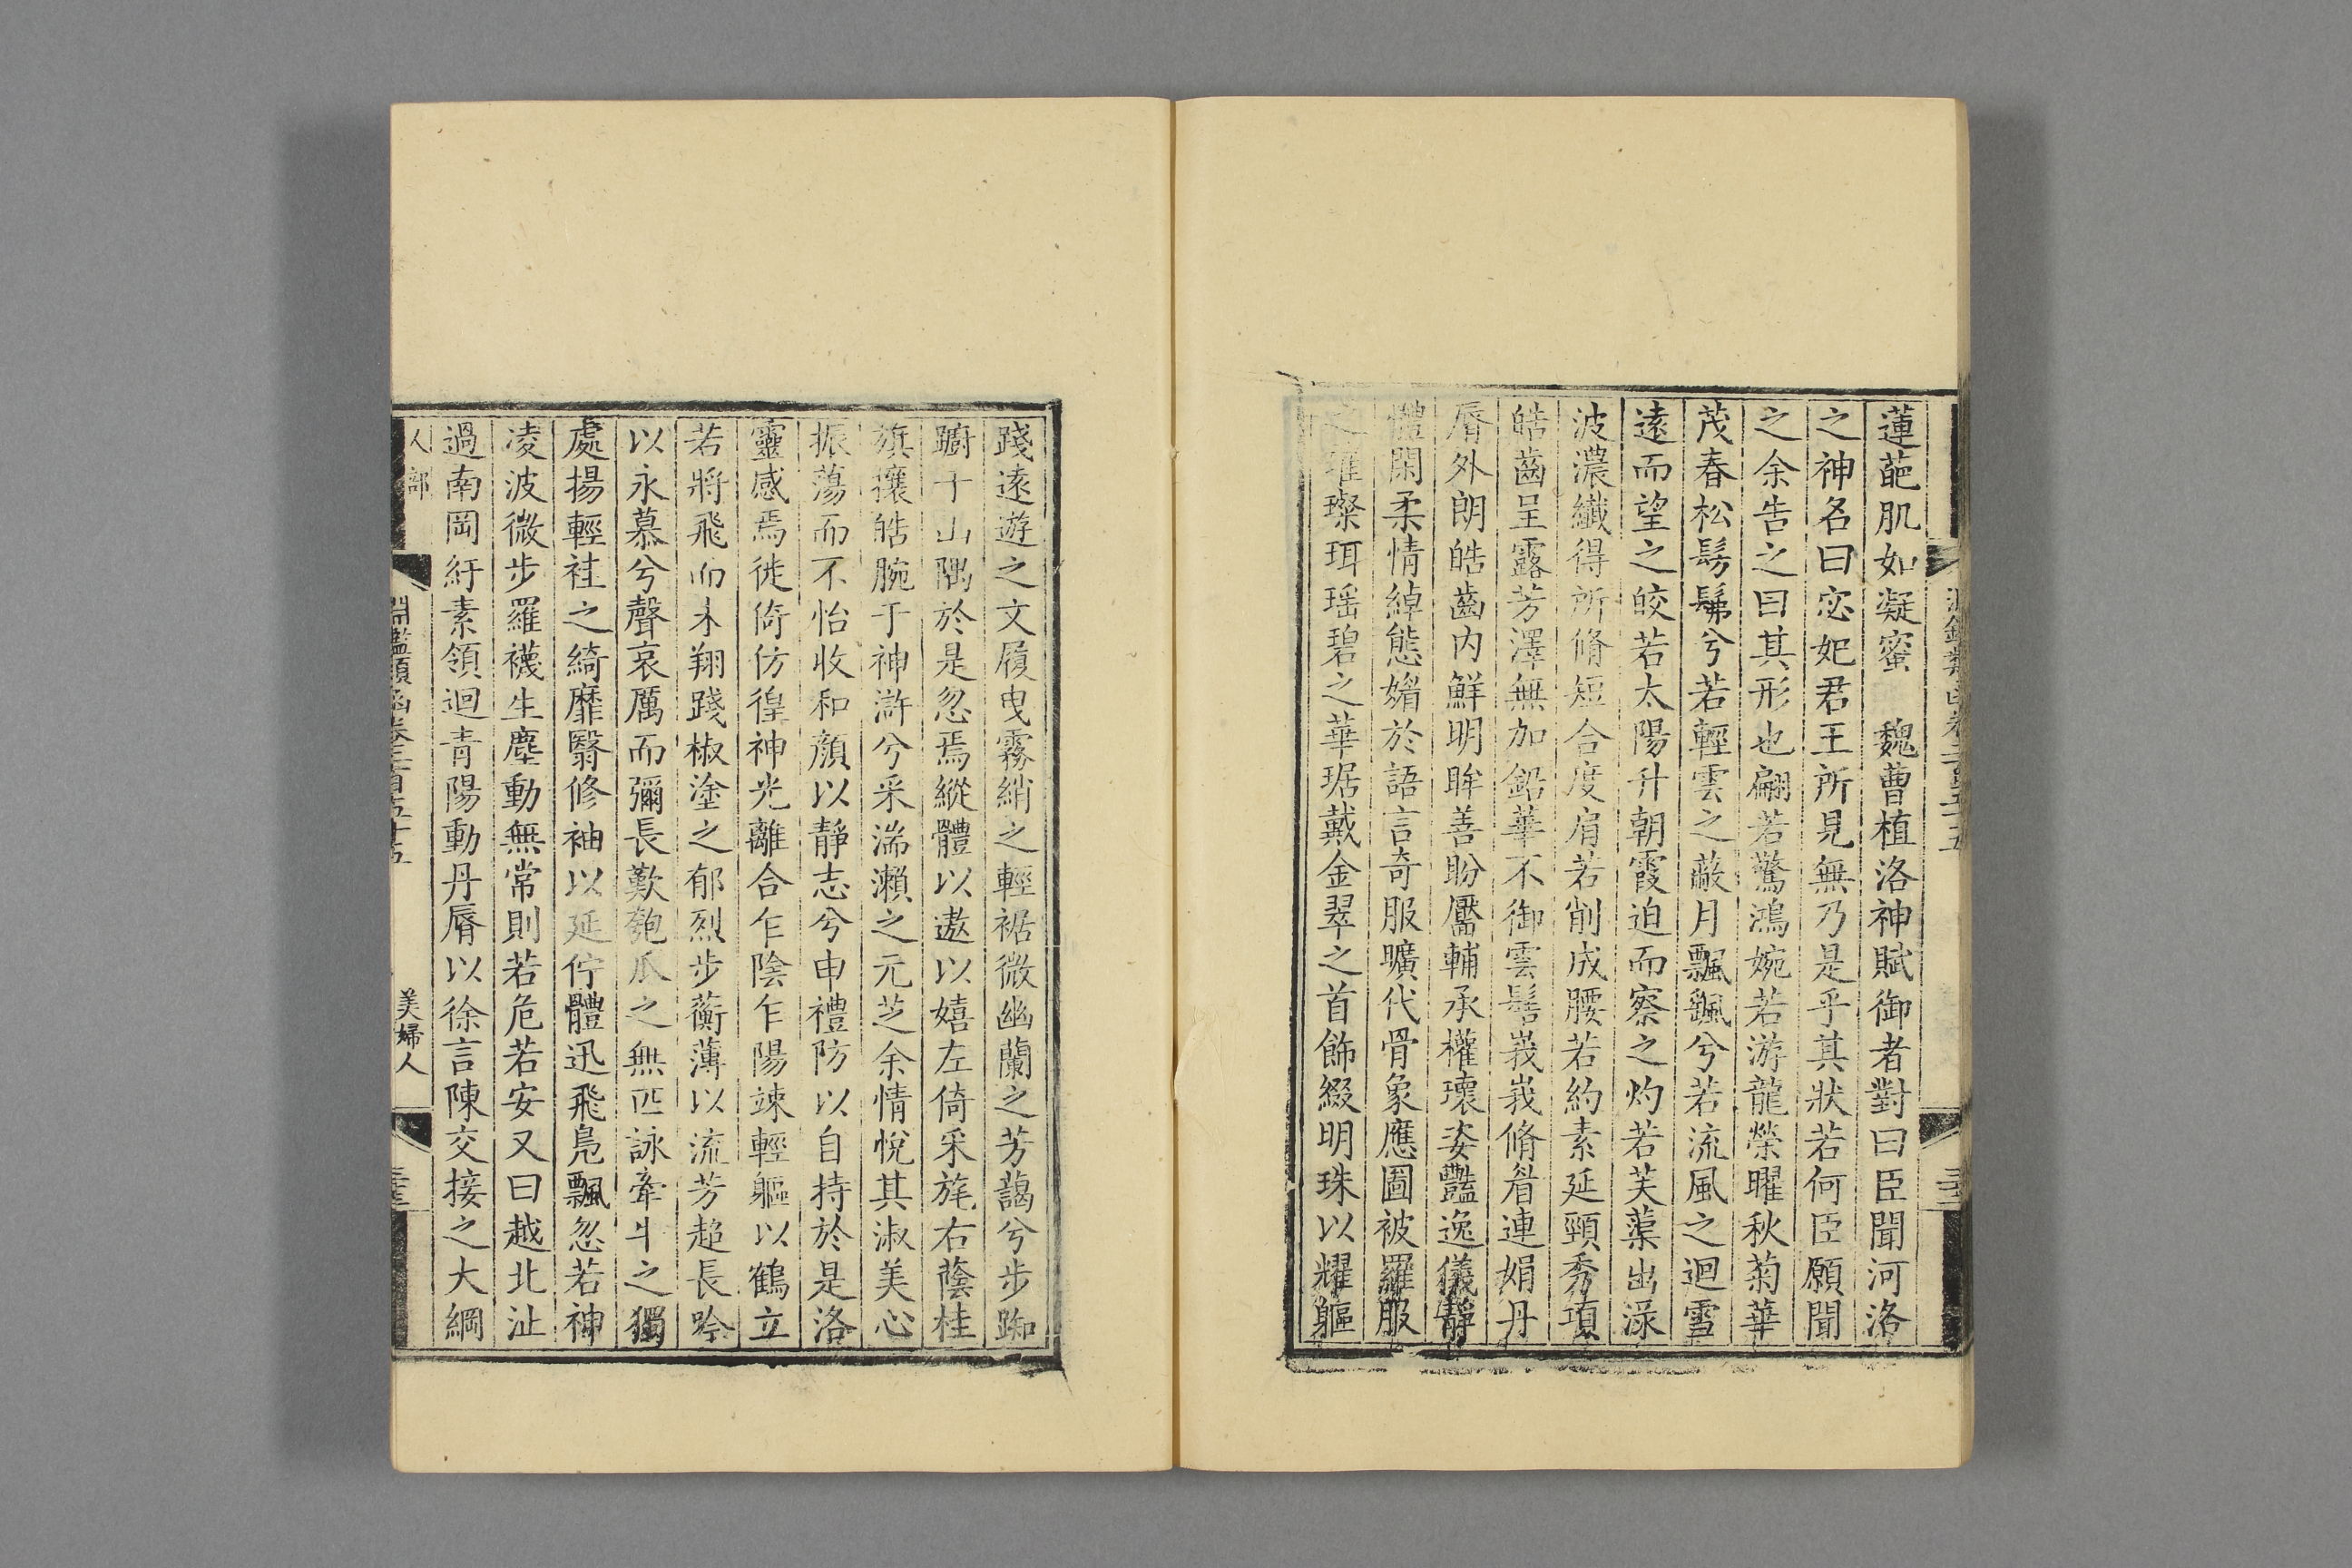 蓮葩肌如凝蜜　魏曹植洛神賦御者對曰臣聞河洛
之神名曰宓妃君王所見無乃是乎其狀若何臣願聞
之余告之曰其形也翩若驚鴻婉若游龍榮曜秋菊華
茂春松髣髴兮若輕雲之蔽月飄颻兮若流風之迴雪
遠而望之皎若太陽升朝霞迫而察之灼若芙蕖出淥
波濃纖得所脩短合度肩若削成腰若約素延頸秀項
皓齒呈露芳澤無加鉛華不御雲髻峩峩脩眉連娟丹
脣外朗皓齒内鮮明眸善盼靨輔承權瓌姿豔逸儀靜
體閑柔情綽態媚於語言奇服曠代骨象應圖被羅服
之璀璨珥瑶碧之華琚戴金翠之首飾綴明珠以耀軀
踐遠遊之文履曳霧綃之輕裾微幽蘭之芳藹兮步踟
蹰于山隅於是忽焉縱體以遨以嬉左倚采旄右蔭桂
旗攘皓腕于神滸兮采湍瀨之元芝余情悅其淑美心
振蕩而不怡收和顏以靜志兮申禮防以自持於是洛
靈感焉徙倚仿徨神光離合乍陰乍陽竦輕軀以鶴立
若將飛而未翔踐椒塗之郁烈步蘅薄以流芳超長吟
以永慕兮聲哀厲而彌長歎匏瓜之無匹詠牽牛之獨
處揚輕袿之綺靡翳修袖以延佇體迅飛鳧飄忽若神
凌波微步羅襪生塵動無常則若危若安又曰越北沚
過南岡紆素領迴青陽動丹脣以徐言陳交接之大綱
人部
淵鑑類函卷二百五十五
美婦人